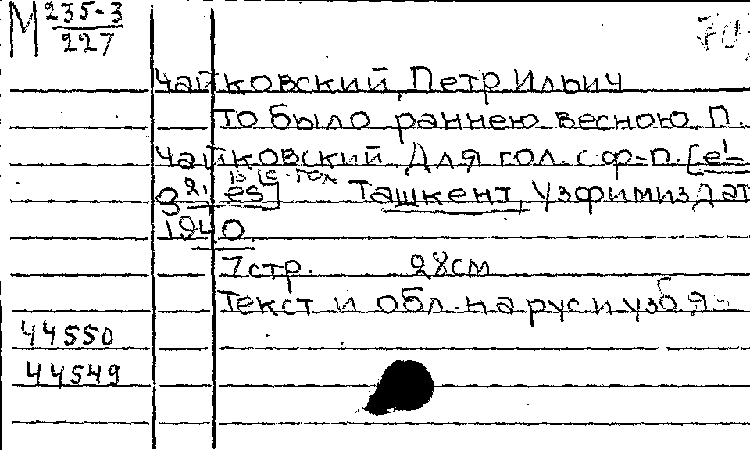 М 235-3
227
Чайковский, Петр Ильич
То было раннею весною П.
Чайковский. Для гол. с ф-п. [e'-
g2, es]
Ташкент, Узфимиздат
1940
7 стр. 28 см
Текст и обл. на рус и узб. я-
44550
44549